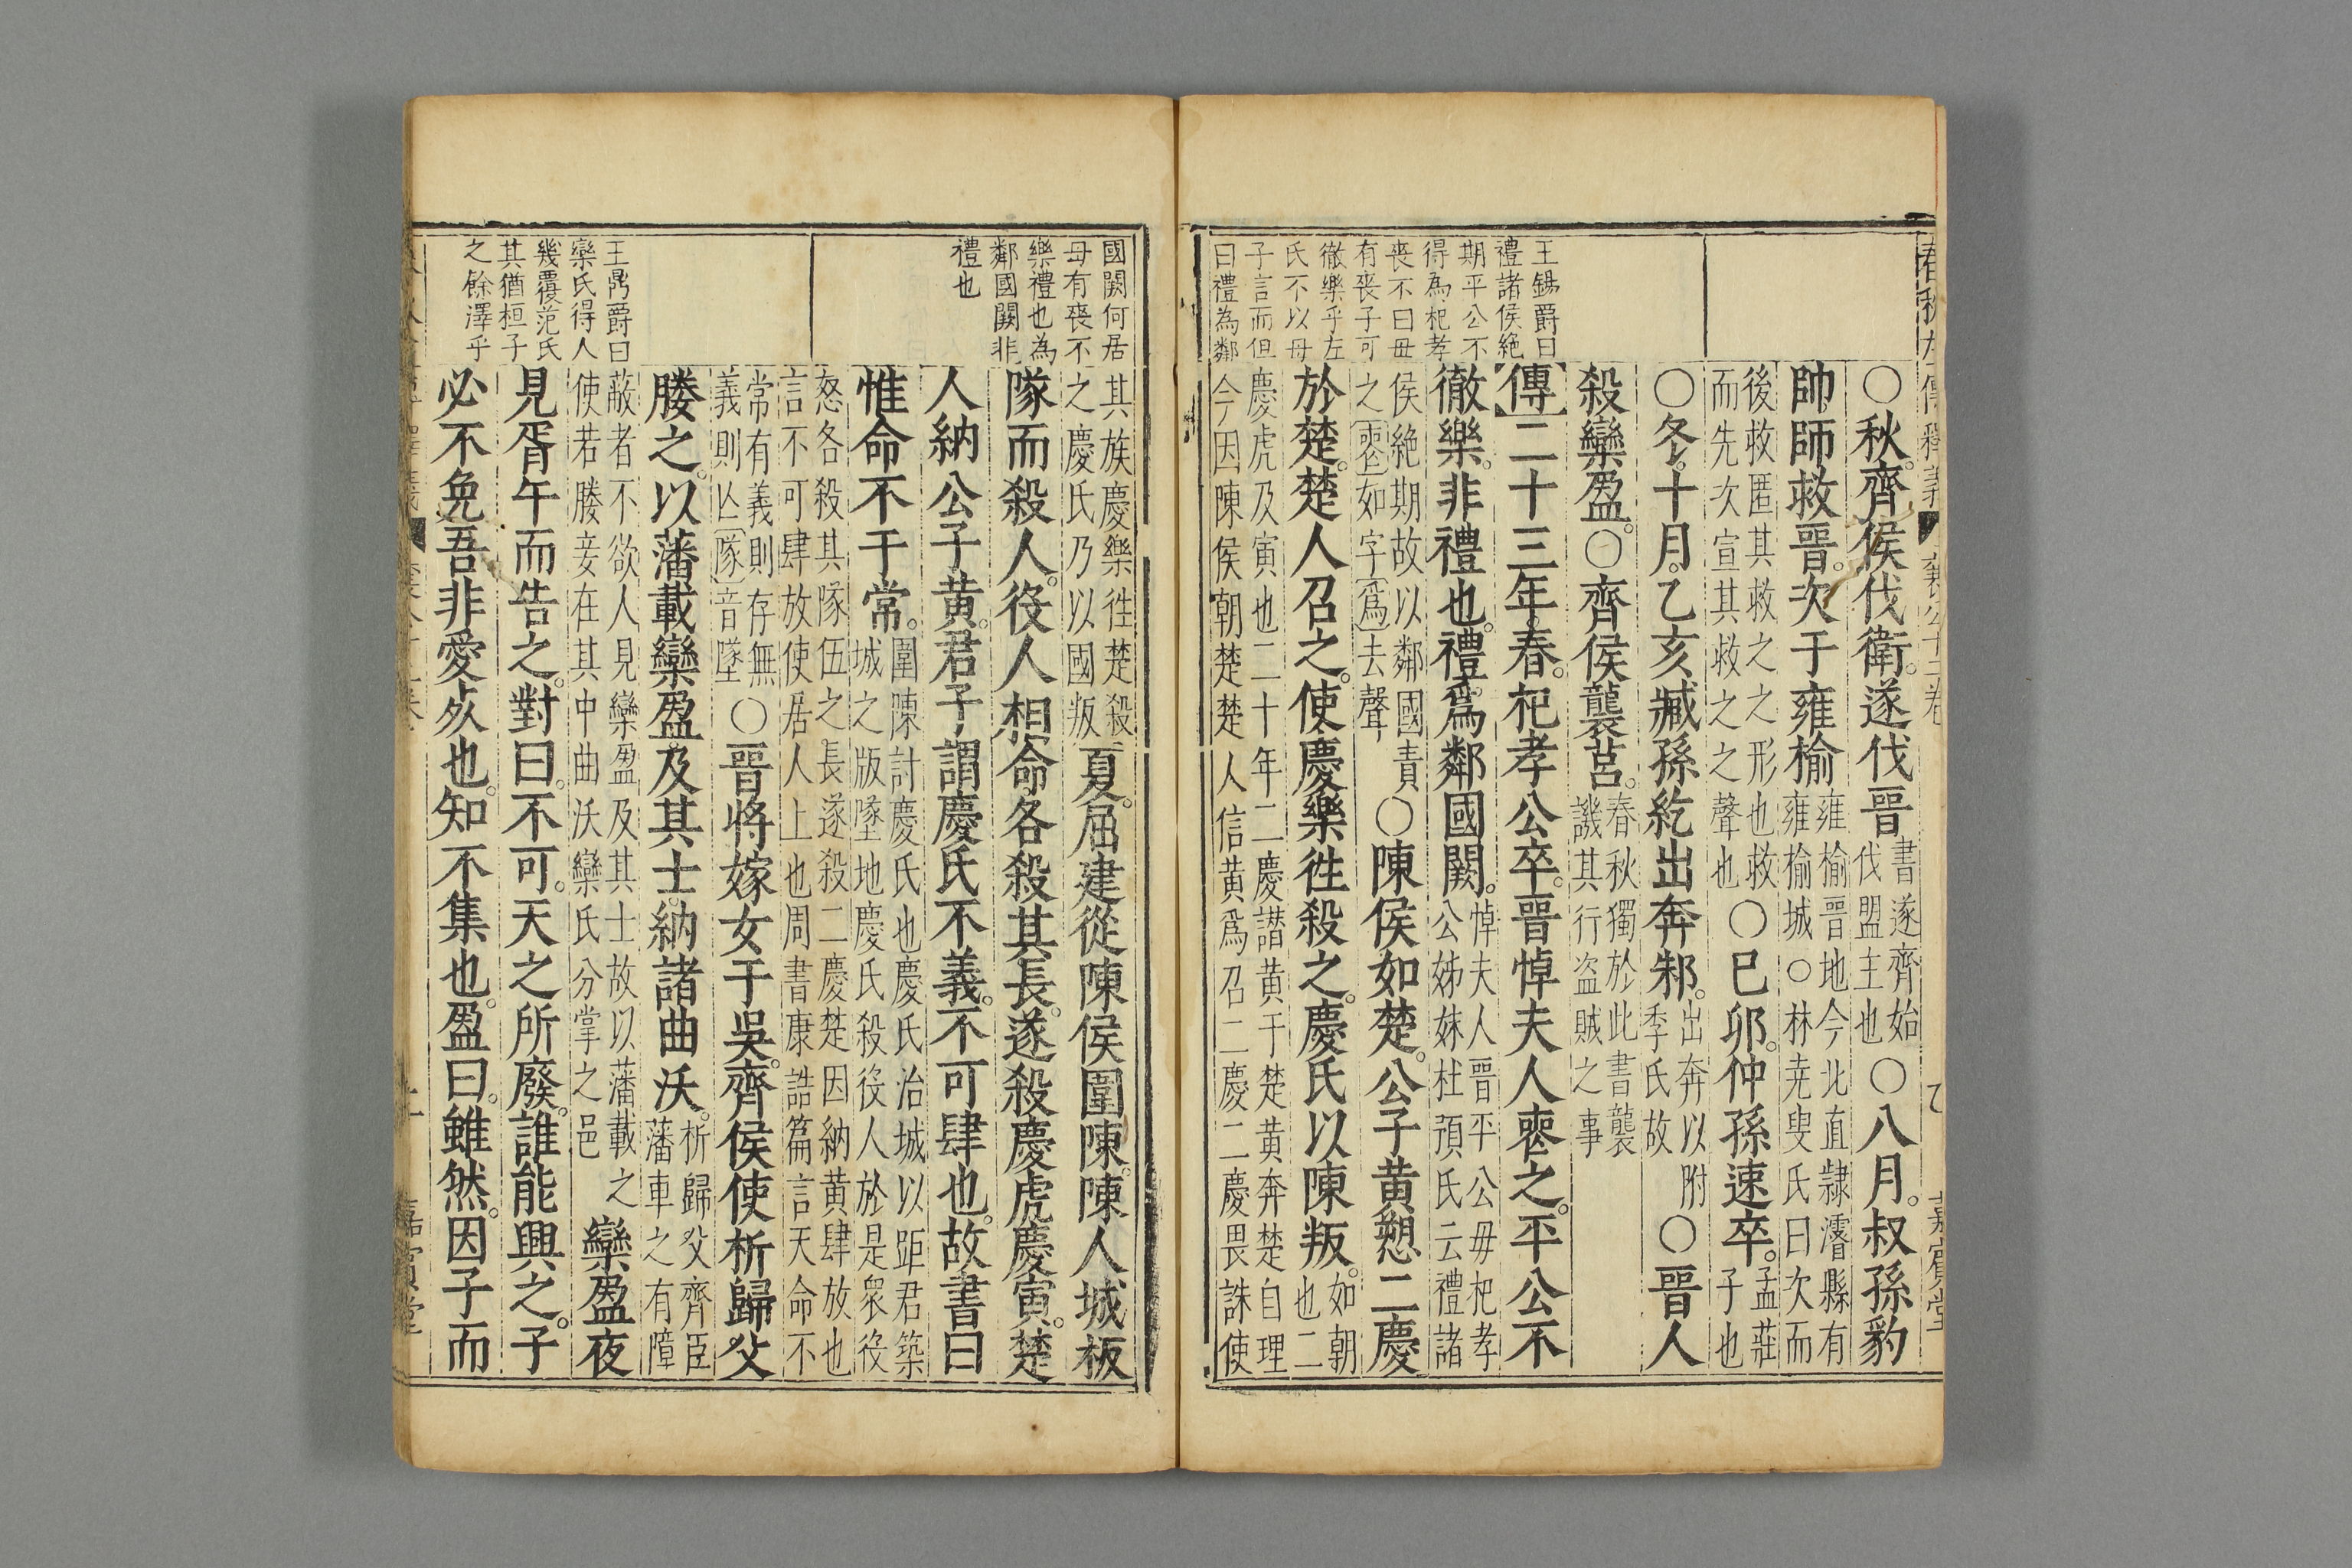 王錫爵曰
禮諸侯絶
期平公不
得為杞孝
喪不曰毋
有喪子可
徹樂乎左
氏不以毋
子言而但
曰禮為鄰
○秋。齊侯伐衛。遂伐晉書遂齊始伐盟主也○八月。叔孫豹
帥師救晉。次于雍榆雍榆晉地今北直隸濬縣有雍榆城○林堯叟氏曰次而
後救匿其救之之形也救而先次宣其救之之聲也○巳卯。仲孫速卒。孟莊子也
○冬。十月。乙亥臧孫紇出奔邾。出奔以附季氏故○晉人
殺欒盈。○齊侯襲莒。春秋獨於此書襲譏其行盗賊之事
傳二十三年。春。杞孝公卒。晉悼夫人喪之。平公不
徹樂。非禮也。禮。爲鄰國闕。悼夫人晉平公毋杞孝公姊妹杜預氏云禮諸
侯絶期故以鄰國責之喪如字爲去聲○陳侯如楚。公子黄愬二慶
於楚。楚人召之。使慶樂徃殺之。慶氏以陳叛。如朝也二
慶虎及寅也二十年二慶譖黄于楚黄奔楚自理今因陳侯朝楚楚人信黄爲召二慶二慶畏誅使
國闕何居
毋有喪不
樂禮也為
鄰國闕非
禮也
王鼎爵曰
欒氏得人
幾覆范氏
其猶桓子
之餘澤乎
其族慶樂徃楚殺之慶氏乃以國叛夏。屈建從陳侯圍陳。陳人城板
隊而殺人。役人相命各殺其長。遂殺慶虎慶寅。楚
人納公子黄。君子謂慶氏不義。不可肆也。故書曰
惟命不于常。圍陳計慶氏也慶氏治城以距君築城之版墜地慶氏殺役人於是衆役
怒各殺其隊伍之長遂殺二慶楚因納黄肆放也言不可肆放使居人上也周書康誥篇言天命不
常有義則存無義則亾隊音墜○晉將嫁女于吳。齊侯使析歸父
媵之。以藩載欒盈及其士。納諸曲沃。析歸父齊臣藩車之有障
蔽者不欲人見欒盈及其士故以藩載之使若媵妾在其中曲沃欒氏分掌之邑欒盈夜
見胥午而告之。對曰。不可。天之所廢。誰能興之。子
必不免吾非愛死也。知不集也。盈曰。雖然。因子而